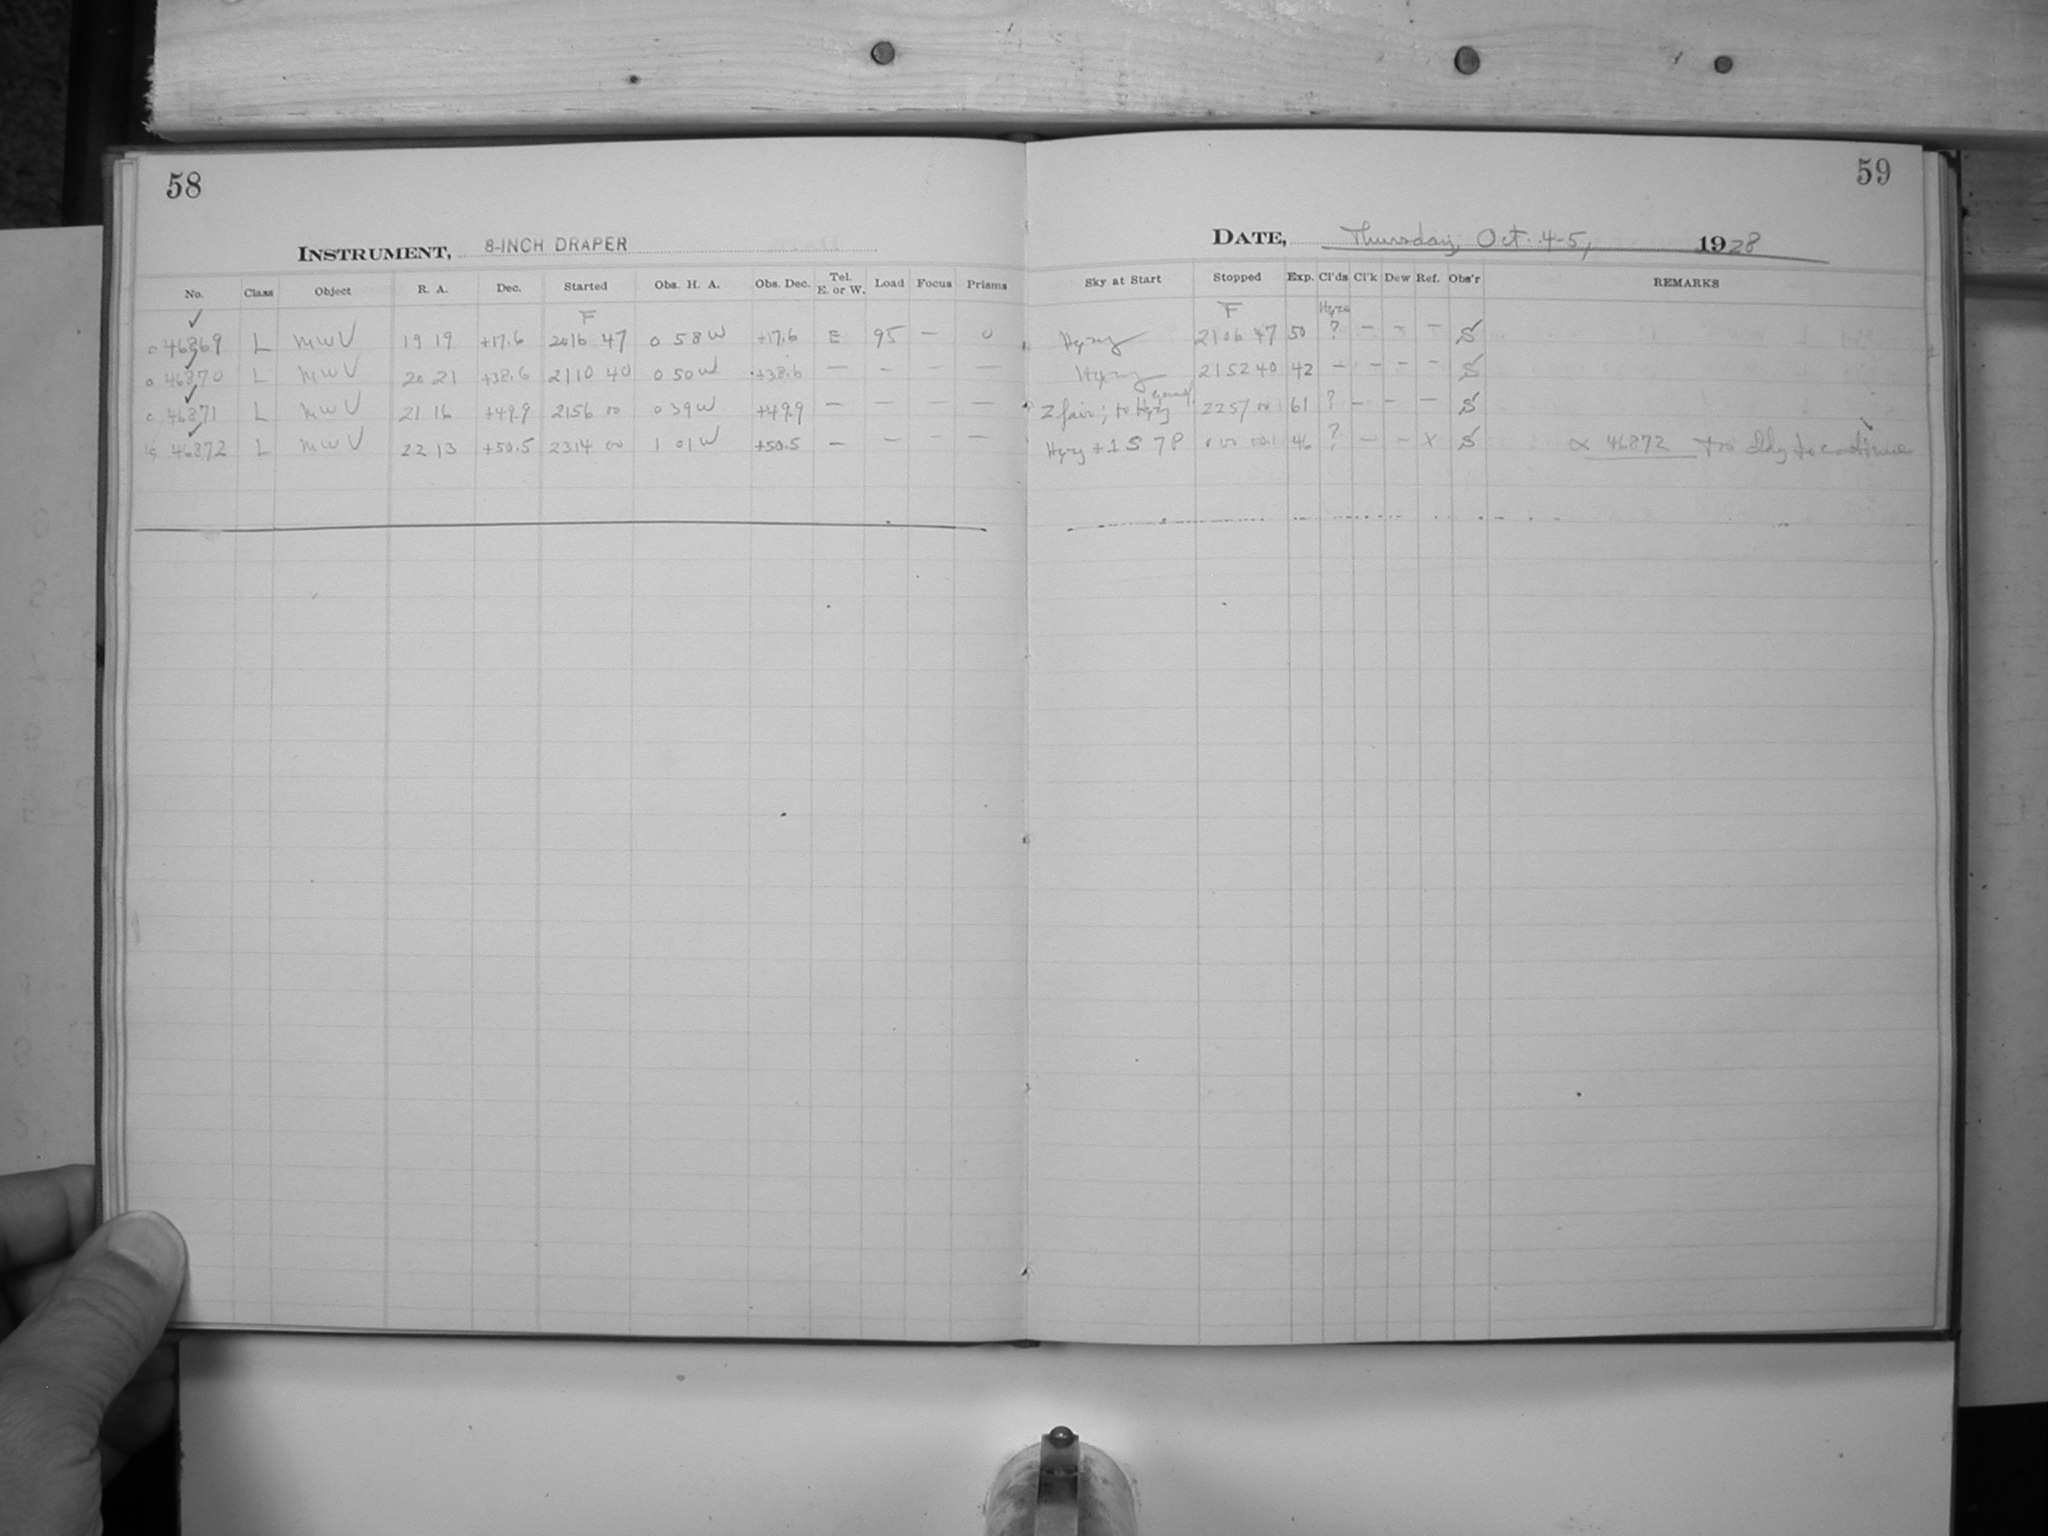 58
INSTRUMENT, 8-INCH DRAPER
No. Class Object R. A. Dec. Started Obs. H. A. Obs. Dec. Tel. E. or W. Load Focus Prisms
F
46869 L MWV 19 19 +17.6 2016 47 0 58 W +17.6 E 95 — 0
46870 L MWV 20 21 +38.6 2110 40 0 50 W +38.6 — — — —
46871 L MWV 21 16 +49.9 2156 00 0 39 W +49.9 — — — —
46872 L MWV 22 13 +50.5 2314 00 1 01 W +50.5 — — — —
59
DATE, Thursday, Oct. 4-5, 1928
Sky at Start Stopped Exp. Cl'ds Cl'k Dew Ref. Obs'r REMARKS
F
Hazy 2106 47 50 ? — — — S
Hazy 2152 40 42 — — — — S
Z fair; to Hazy 2257 00 61 ? — — — S
Hazy + 1 S 7 P 46 ? — — X S 46872 too cldy to continue